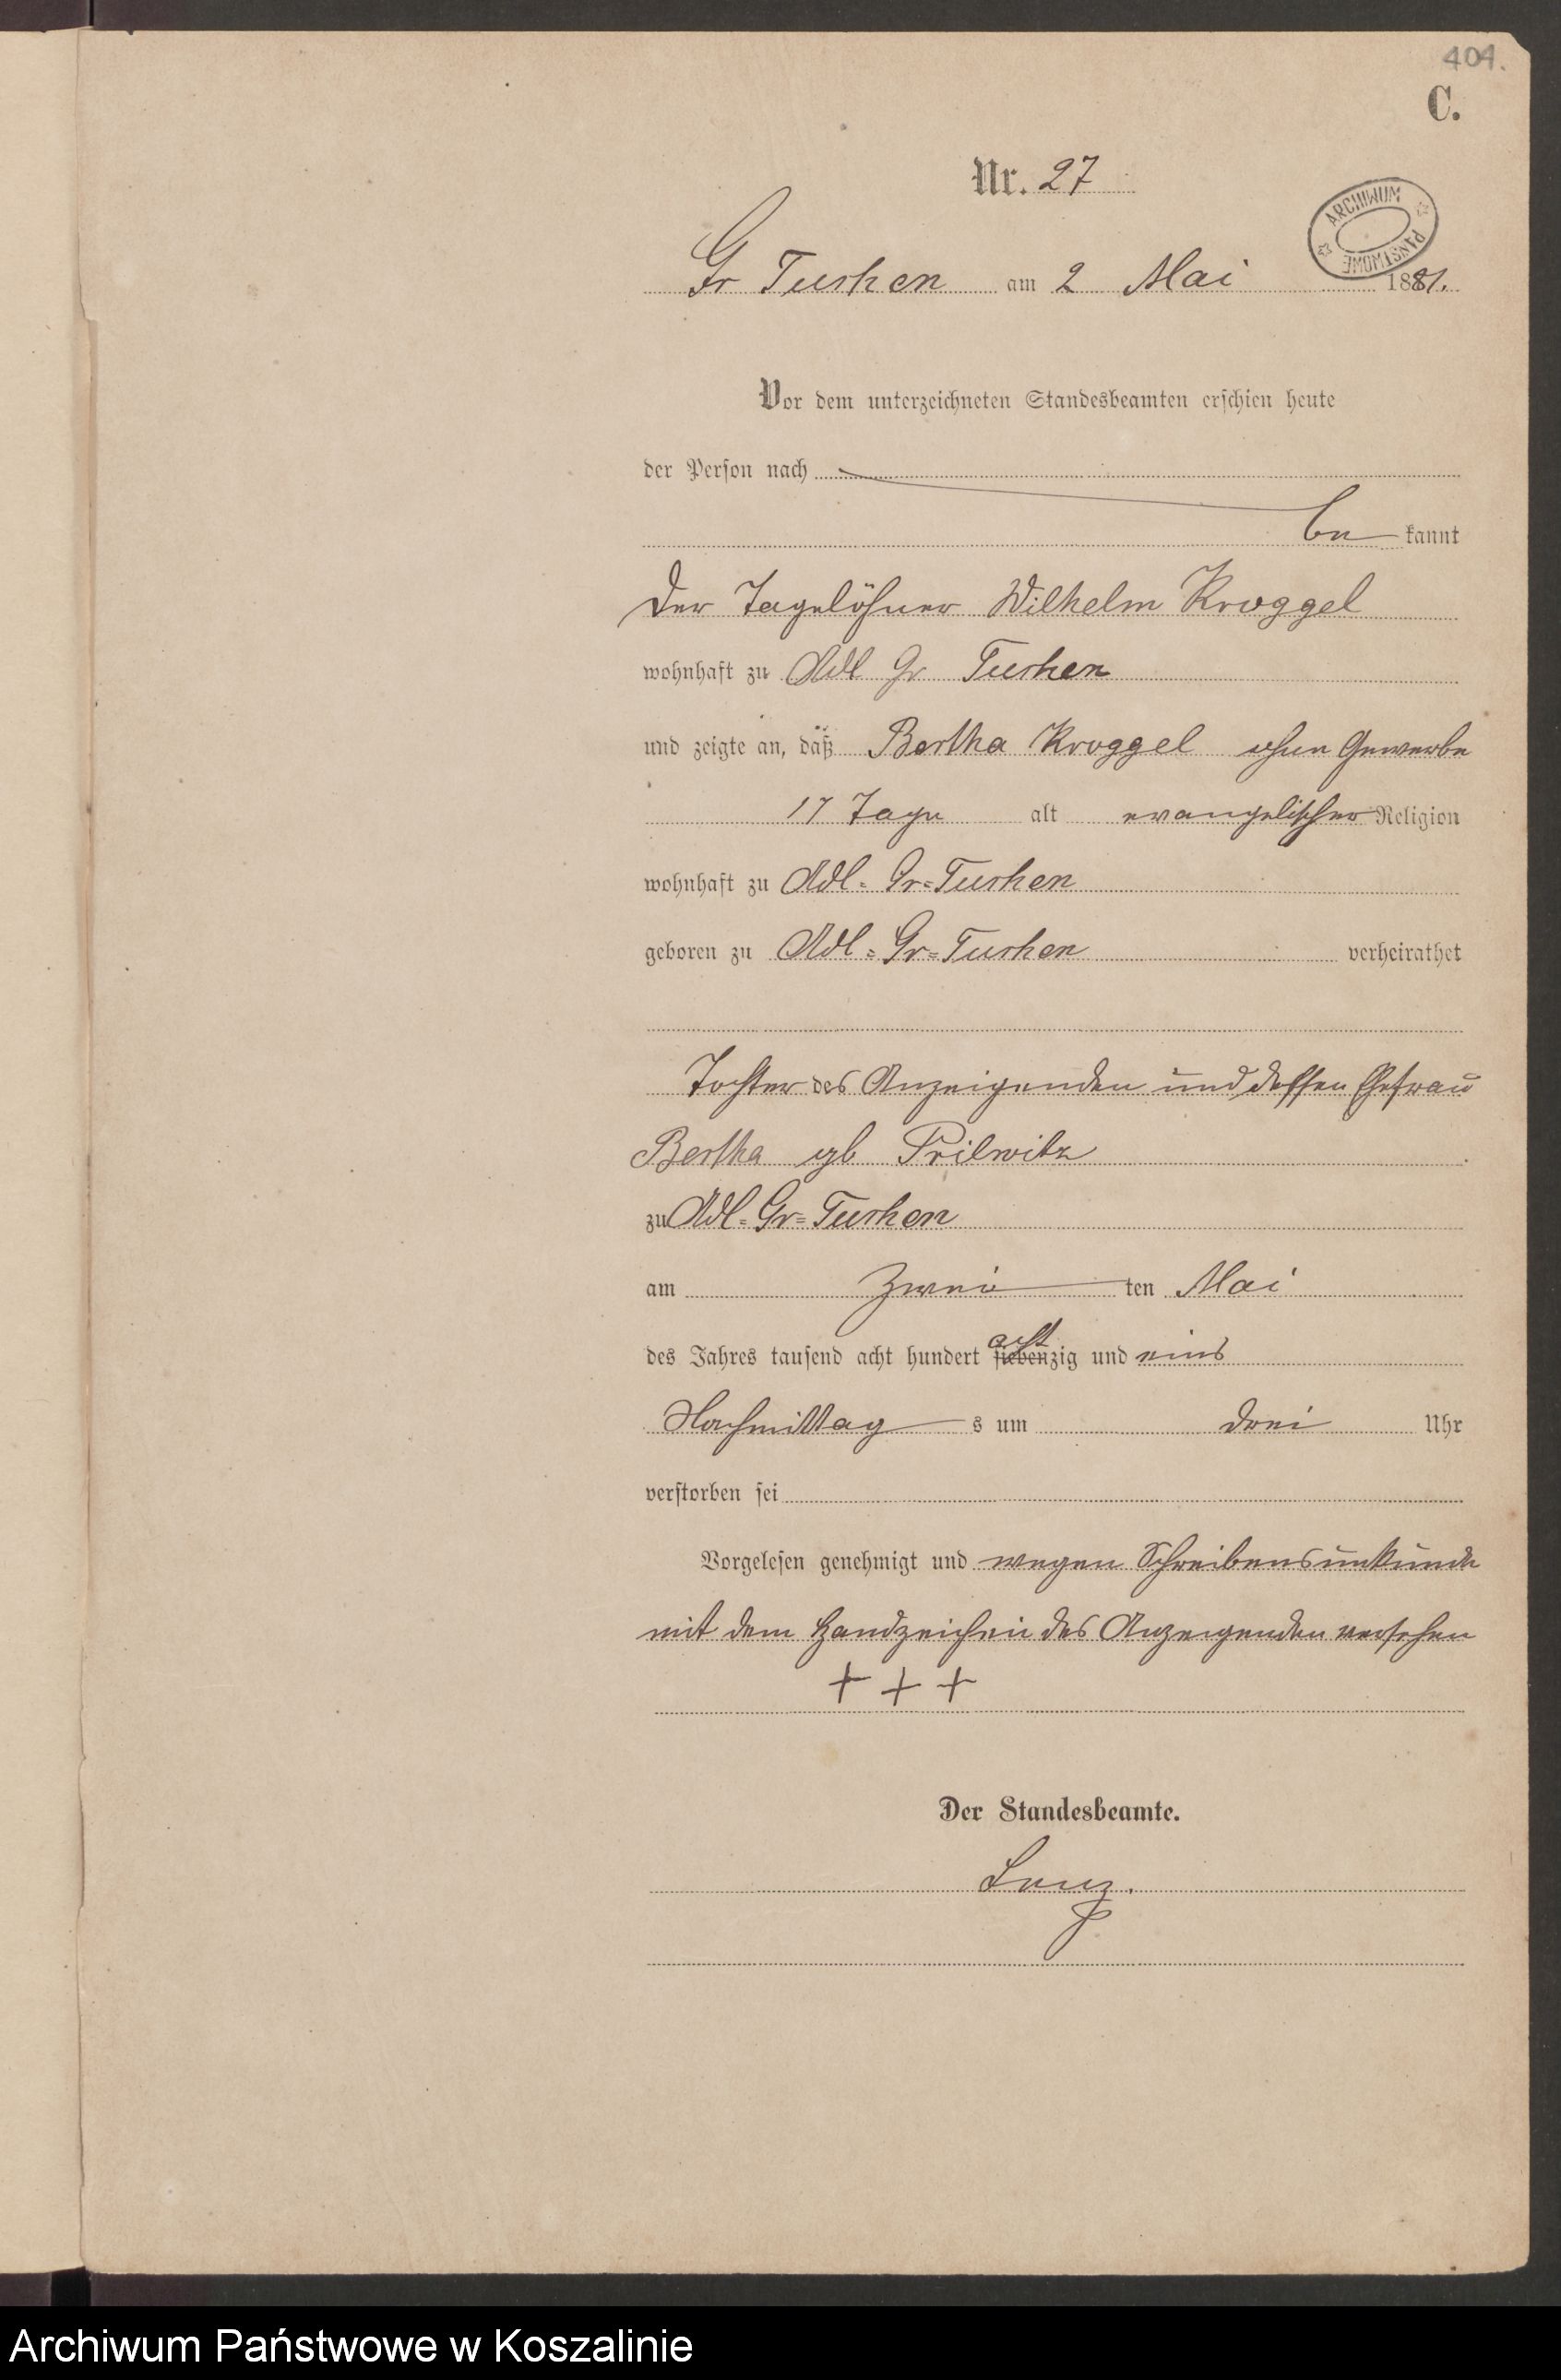 404.
C.
Nr. 27
ARCHIWUM PAŃSTWOWE
Gr Tuchen am 2 Mai 1881.
Vor dem unterzeichneten Standesbeamten erschien heute
der Person nach
be kannt
der Tagelöhner Wilhelm Kroggel
wohnhaft zu Adl Gr Tuchen
und zeigte an, daß Bertha Kroggel ohne Gewerbe
17 Tage alt evangelischer Religion
wohnhaft zu Adl= Gr=Tuchen
geboren zu Adl=Gr=Tuchen verheirathet
Tochter des Anzeigenden und dessen Ehefrau
Bertha gb Prilwitz
zu Adl=Gr=Tuchen
am zwei ten Mai
des Jahres tausend acht hundert siebenzig acht und eins
Nachmittag s um drei Uhr
verstorben sei
Vorgelesen genehmigt und wegen Schreibensunkunde
mit dem Handzeichen des Anzeigenden versehen
+ + +
Der Standesbeamte.
Archiwum Państwowe w Koszalinie